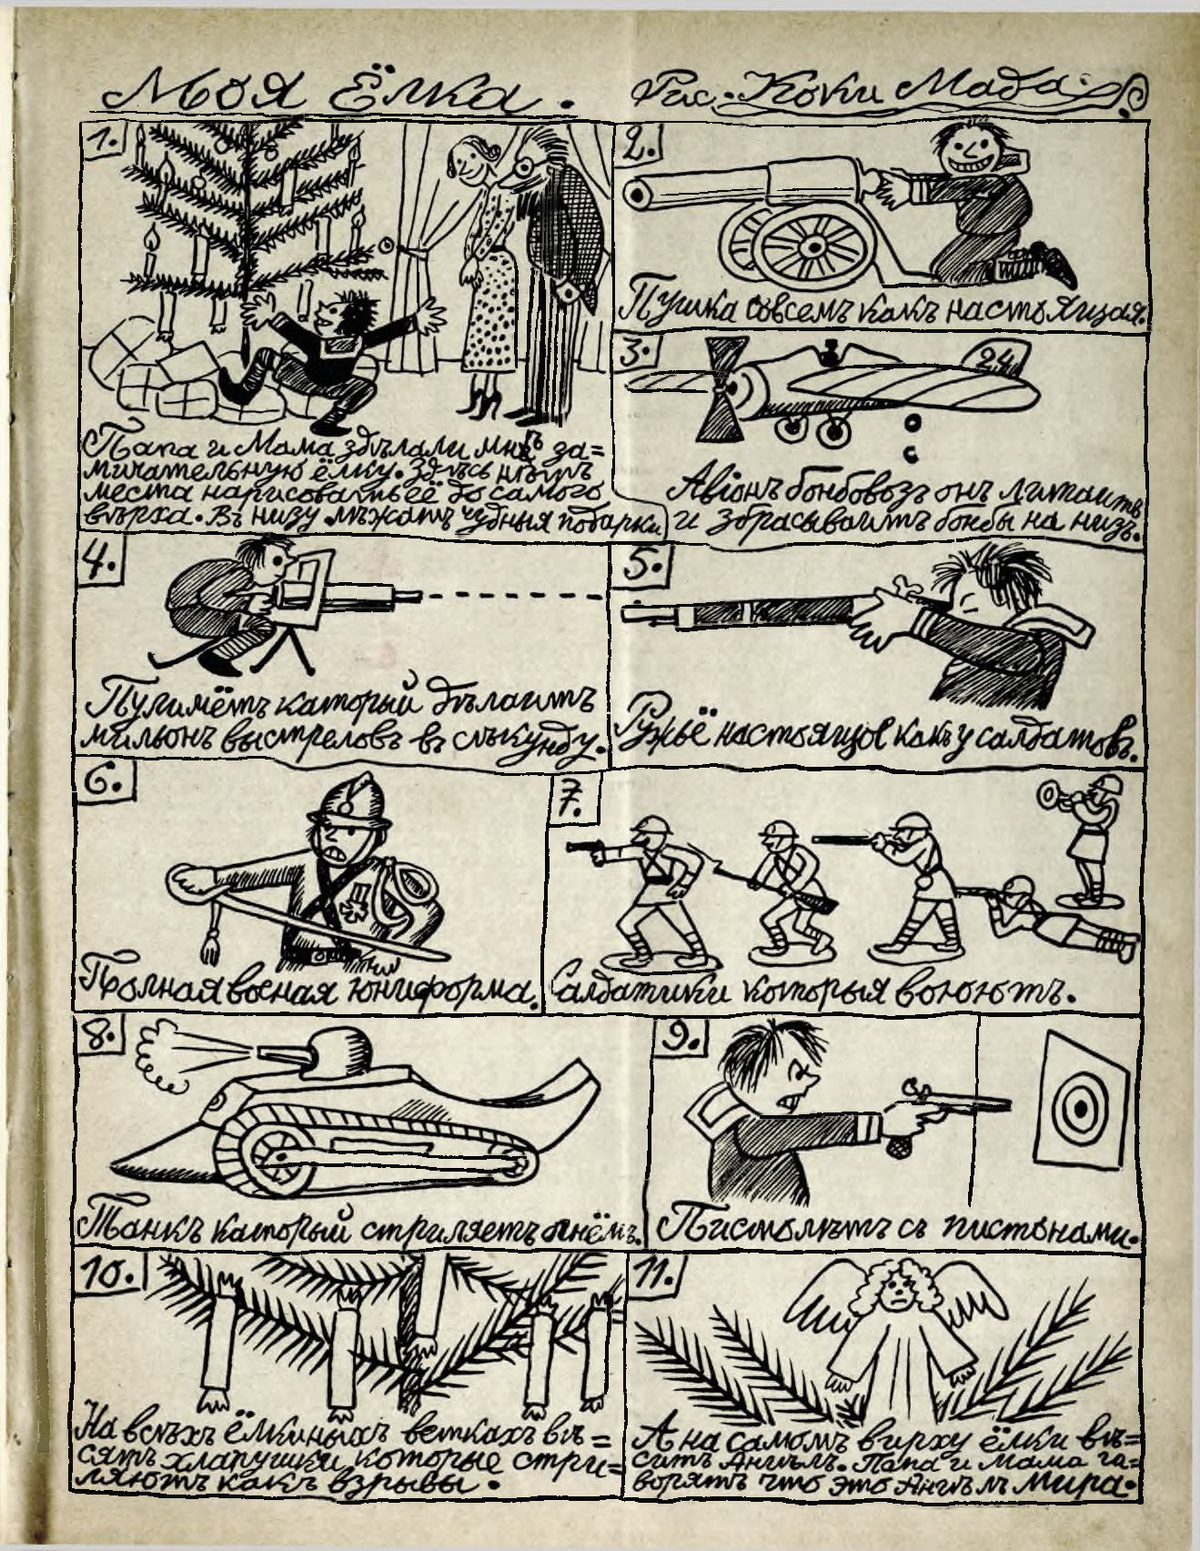 Моя Ёлка.
Рис. Коки Мада.
1.
Папа и Мама здѣлали мнѣ за=
мичательную ёлку. Здѣсь нѣтъ
места нарисовать её до самого
вѣрха. Въ низу лѣжатъ чудныя подарки
2.
Пушка совсемъ какъ настъящая.
3.
24
Авіонъ бонбовозъ онъ литаитъ
и збрасываитъ бонбы на низъ.
4.
Пулимётъ каторый дѣлаитъ
мильонъ выстреловъ въ сѣкунду.
5.
Ружьё настоящое какъ у салдатовъ.
6.
Полная военая юниформа.
7.
Салдатики которыя воюютъ.
8.
Танкъ каторый стриляетъ огнёмъ.
9.
Пистолѣтъ съ пистонами.
10.
На всѣхъ ёлкиныхъ веткахъ вѣ=
сятъ хлапушки которые стри=
ляютъ какъ взрывы.
11.
А на самомъ вирху ёлки вѣ=
ситъ Ангѣлъ. Папа и Мама га=
ворятъ что это Ангѣлъ Мира.